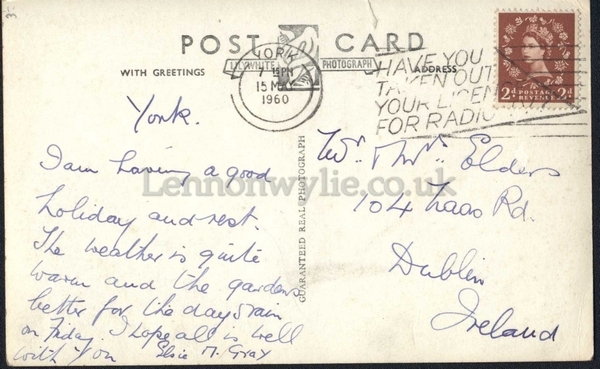 POST CARD
LILYWHITE PHOTOGRAPH
WITH GREETINGS
ADDRESS
YORK
7 PM
15 MAY
1960
HAVE YOU
TAKEN OUT
YOUR LICEN
FOR RADIO
2d POSTAGE REVENUE 2d
York.
I am having a good
holiday and rest.
The weather is quite
warm and the gardens
better for the days rain
on Friday. I hope all is well
with you Elsie M. Gray
GUARANTEED REAL PHOTOGRAPH
Mr. & Mrs. Elders
104 Naas Rd.
Dublin
Ireland
Lennonwylie.co.uk